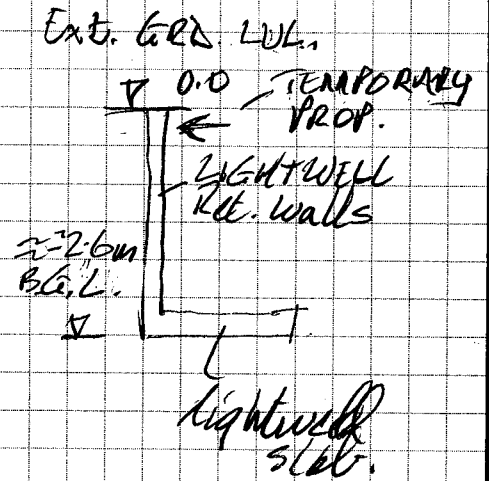 Ext. GRD. LVL.
0.0
TEMPORARY
PROP.
LIGHTWELL
Ret. Walls
≈-2.6m
B.G.L.
lightwell
slab.